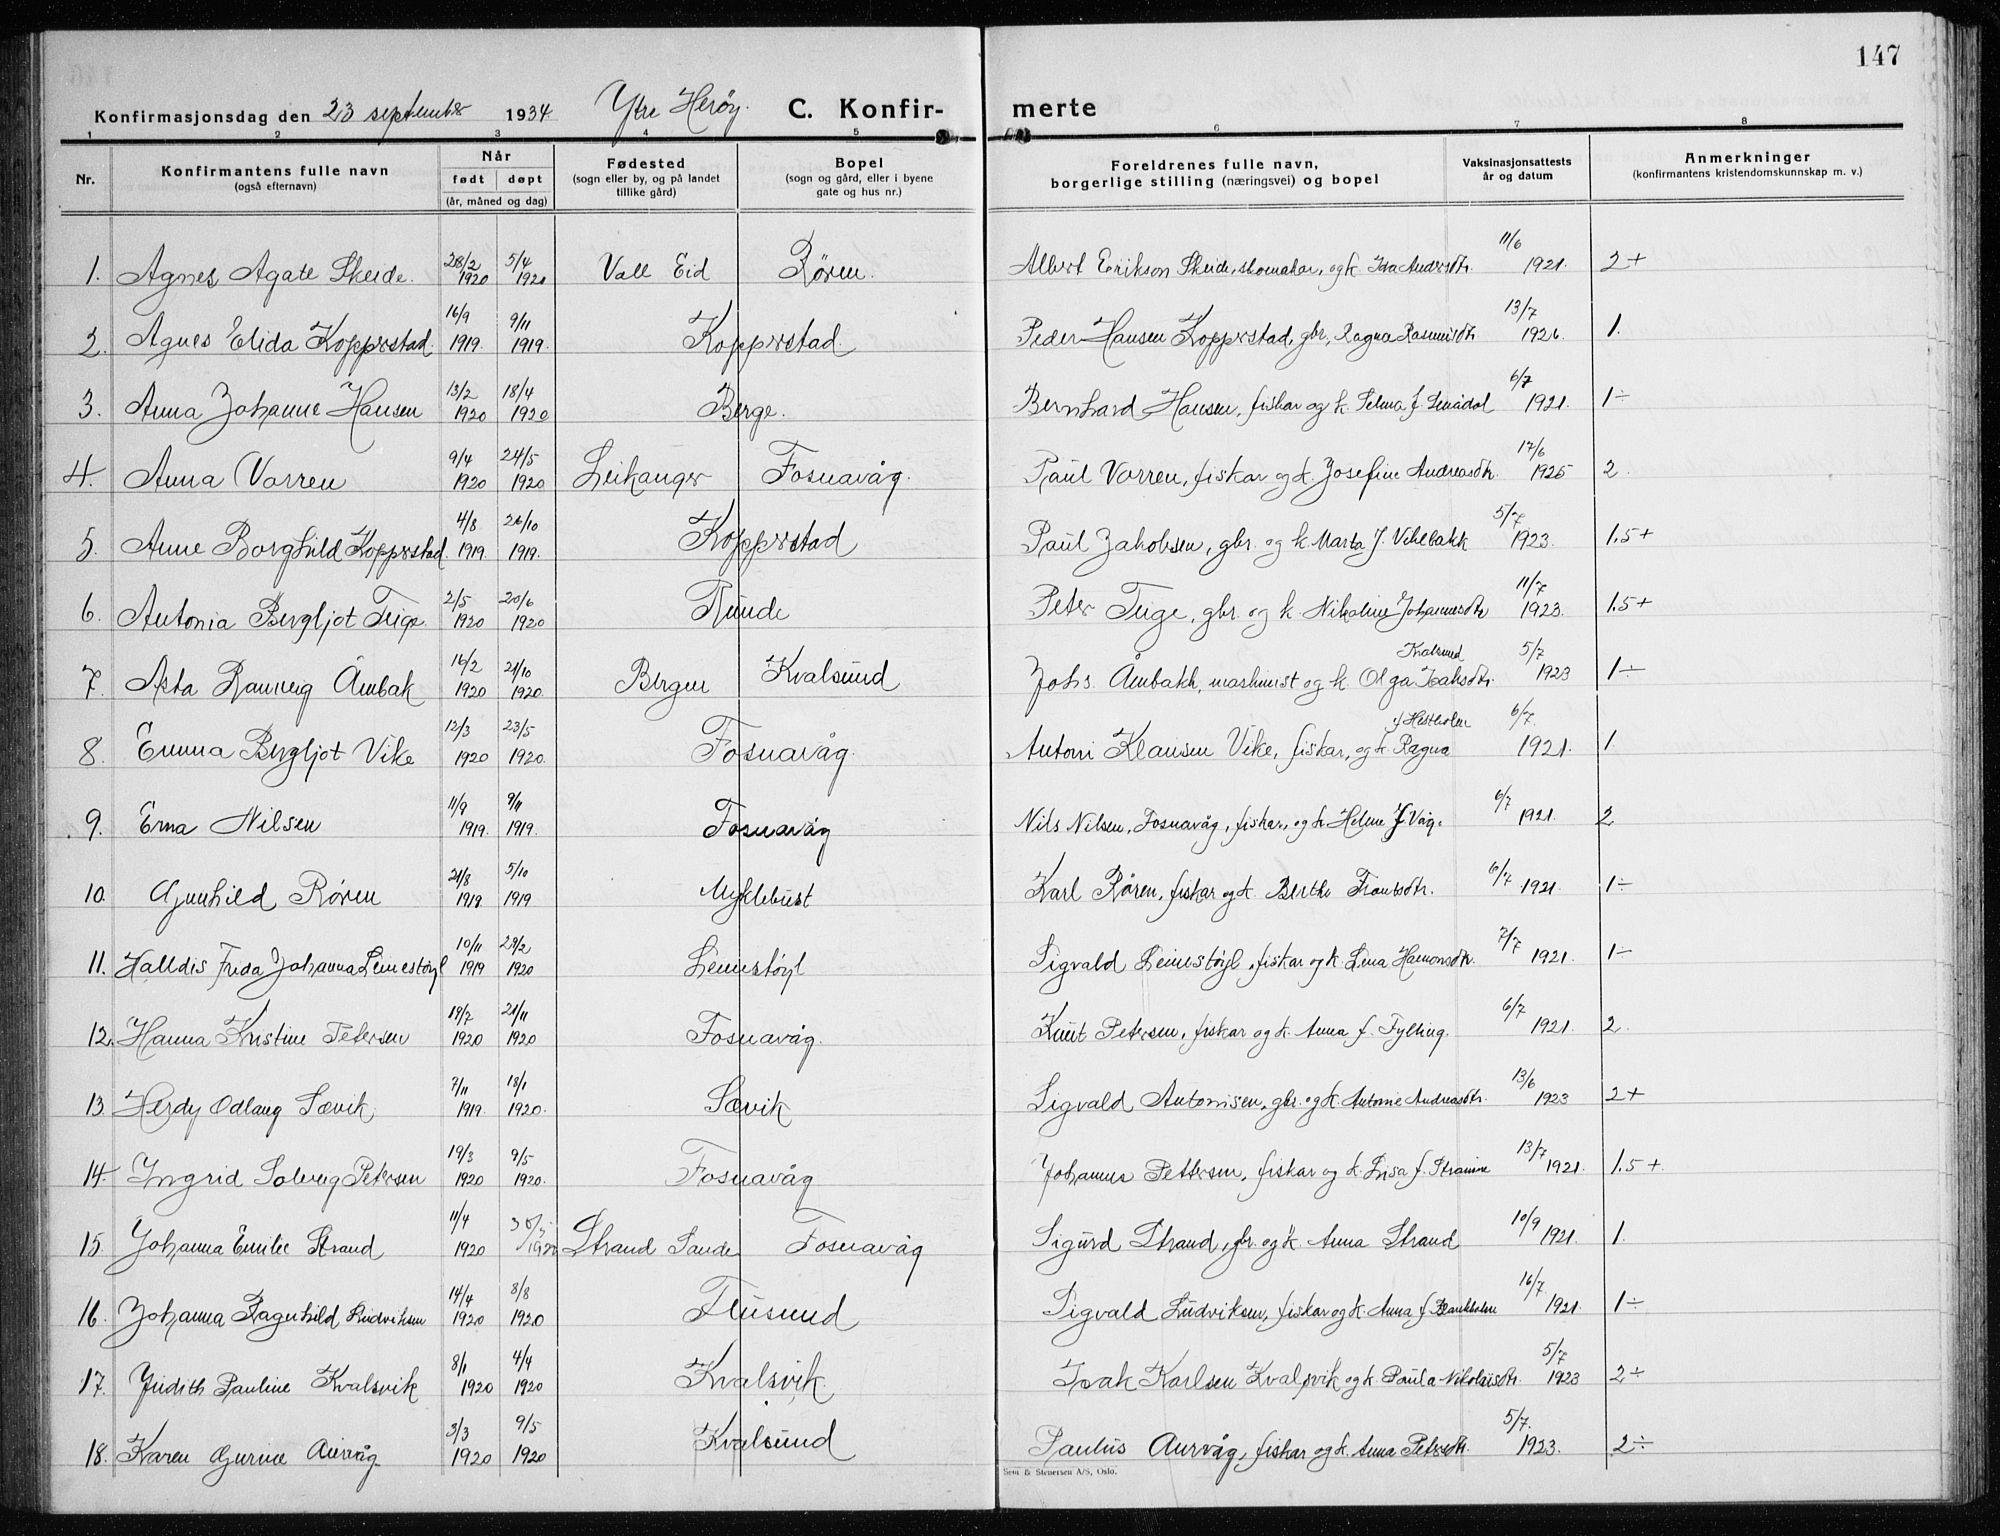 147
Konfirmasjonsdag den 23 september 1934 Ytre Herøy. C. Konfir- merte
1 2 3 4 5 6 7 8
Nr. Konfirmantens fulle navn (også efternavn) Når født døpt (år, måned og dag) Fødested (sogn eller by, og på landet tillike gård) Bopel (sogn og gård, eller i byene gate og hus nr.) Foreldrenes fulle navn, borgerlige stilling (næringsvei) og bopel Vaksinasjonsattests år og datum Anmerkninger (konfirmantens kristendomskunnskap m. v.)
1. Agnes Agate Skeide. 28/2 1920 5/4 1920 Vall Eid Røren. Albert Erikson Skeide, skomakar, og k. Ida Andersdtr. 11/6 1921. 2+
2. Agnes Elida Kopperstad. 16/9 1919. 9/11 1919. Kopperstad. Peder Hansen Kopperstad, gbr, Ragna Rasmusdtr 13/7 1926 1.
3. Anna Johanne Hansen 13/2 1920 18/4 1920 Berge. Bernhard Hansen, fiskar og k. Selma f. Smådal 6/7 1921. 1÷
4. Anna Vorren 9/4 1920 24/5 1920 Leikanger Fosnavåg. Paul Vorren, fiskar og k. Josefine Andreasdtr. 17/6 1925 2.
5. Anne Borghild Kopperstad 4/8 1919. 26/10 1919. Kopperstad Paul Jakobsen, gbr. og k. Marta J. Vikebakk 5/7 1923. 1.5+
6. Antonia Bergljot Teige. 2/5 1920 20/6 1920 Runde Peter Teige, gbr. og k. Nikoline Johannesdtr 11/7 1923. 1.5+
7. Asta Rannveig Åmbak 16/2 1920 21/10 1920. Bergen Kvalsund Johs. Åmbakk, maskinist og k. Olga Isaksdtr. Kvalsund 5/7 1923 1÷
8. Emma Bergljot Vike 12/3 1920 23/5 1920. Fosnavåg. Antoni Klausen Vike, fiskar, og k. Ragna f Hestholm 6/7. 1921. 1.
9. Erna Nilsen 11/9 1919. 9/11 1919. Fosnavåg Nils Nilsen, Fosnavåg, fiskar, og k. Helene J. Våg. 6/7 1921. 2
10. Gunhild Røren 21/8 1919. 5/10 1919 Myklebust Karl Røren, fiskar og k. Berthe Frantsdtr. 6/7 1921. 1÷
11. Halldis Frida Johanna Leinestøyl 10/11 1919 29/2 1920 Leinestøyl Sigvald Leinestøyl, fiskar og k. Lina Hamonsdtr. 7/7 1921. 1÷
12. Hanna Kristine Petersen 19/7 1920 21/11 1920 Fosnavåg. Knut Petersen, fiskar og k. Anna f. Tylting. 6/7 1921. 2.
13. Herdy Odlaug Sævik. 7/11 1919. 18/1 1920. Sævik Sigvald Antonisen, gbr. og k. Antonie Andreasdtr. 13/6 1923 2+
14. Ingrid Solveig Petersen 19/3 1920 9/5 1920. Fosnavåg Johannes Pettersen, fiskar og k. Lisa f. 13/7 1921. 1.5+.
15. Johanna Emilie Strand 11/4 1920 Strand Sande Fosnavåg Sigurd Strand, gbr. og k. Anna Strand 10/9 1921. 1.
16. Johanna Ragnhild Ludviksen 14/4 1920 8/8 1920 Flusund Sigvald Ludviksen, fiskar og k. Anna f. Blankholm 16/7 1921. 1÷
17. Judith Pauline Kvalsvik 8/1 1920 4/4 1920 Kvalsvik Isak Karlsen Kvalsvik og k. Paula Nikolaisdtr. 5/7 1923 2÷
18. Karen Gurine Aurvåg. 3/3 1920 9/5 1920 Kvalsund Paulus Aurvåg, fiskar og k. Anna Petersdtr. 5/7. 1923. 2÷
Sem & Stenersen A/S, Oslo.